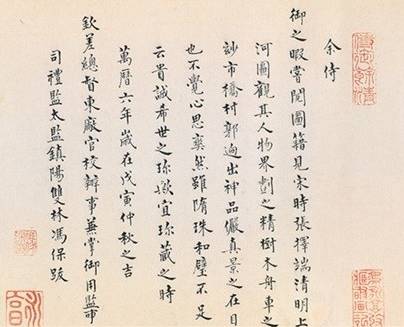 余侍
御之暇嘗閱圖籍見宋時張擇端清明上
河圖觀其人物界劃之精樹木舟車之
玅市橋村郭迥出神品儼真景之在目
也不覺心思爽然雖隋珠和璧不足
云貴誠希世之珎歟宜珎藏之時
萬曆六年歲在戊寅仲秋之吉
欽差總督東廠官校辦事兼掌御用監事
司禮監太監鎮陽雙林馮保跋